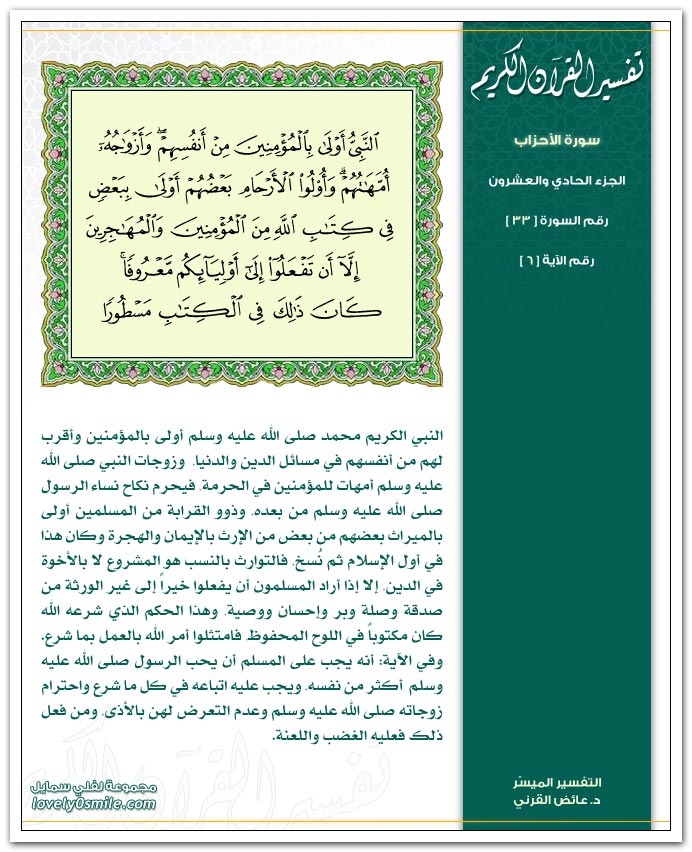 تفسير القرآن الكريم
سورة الأحزاب
الجزء الحادي والعشرون
رقم السورة [ ٣٣ ]
رقم الآية [ ٦ ]
ٱلنَّبِىُّ أَوْلَىٰ بِٱلْمُؤْمِنِينَ مِنْ أَنفُسِهِمْ ۖ وَأَزْوَٰجُهُۥٓ
أُمَّهَٰتُهُمْ ۗ وَأُو۟لُوا۟ ٱلْأَرْحَامِ بَعْضُهُمْ أَوْلَىٰ بِبَعْضٍ
فِى كِتَٰبِ ٱللَّهِ مِنَ ٱلْمُؤْمِنِينَ وَٱلْمُهَٰجِرِينَ
إِلَّآ أَن تَفْعَلُوٓا۟ إِلَىٰٓ أَوْلِيَآئِكُم مَّعْرُوفًا ۚ
كَانَ ذَٰلِكَ فِى ٱلْكِتَٰبِ مَسْطُورًا
النبي الكريم محمد صلى الله عليه وسلم أولى بالمؤمنين وأقرب
لهم من أنفسهم في مسائل الدين والدنيا، وزوجات النبي صلى الله
عليه وسلم أمهات للمؤمنين في الحرمة، فيحرم نكاح نساء الرسول
صلى الله عليه وسلم من بعده، وذوو القرابة من المسلمين أولى
بالميراث بعضهم من بعض من الإرث بالإيمان والهجرة وكان هذا
في أول الإسلام ثم نُسخ، فالتوارث بالنسب هو المشروع لا بالأخوة
في الدين، إلا إذا أراد المسلمون أن يفعلوا خيراً إلى غير الورثة من
صدقة وصلة وبر وإحسان ووصية، وهذا الحكم الذي شرعه الله
كان مكتوباً في اللوح المحفوظ، فامتثلوا أمر الله بالعمل بما شرع.
وفي الآية: أنه يجب على المسلم أن يحب الرسول صلى الله عليه
وسلم أكثر من نفسه، ويجب عليه اتباعه في كل ما شرع واحترام
زوجاته صلى الله عليه وسلم وعدم التعرض لهن بالأذى، ومن فعل
ذلك فعليه الغضب واللعنة.
تفسير القرآن الكريم
مجموعة لفلي سمايل
lovely0smile.com
التفسير الميسّر
د. عائض القرني